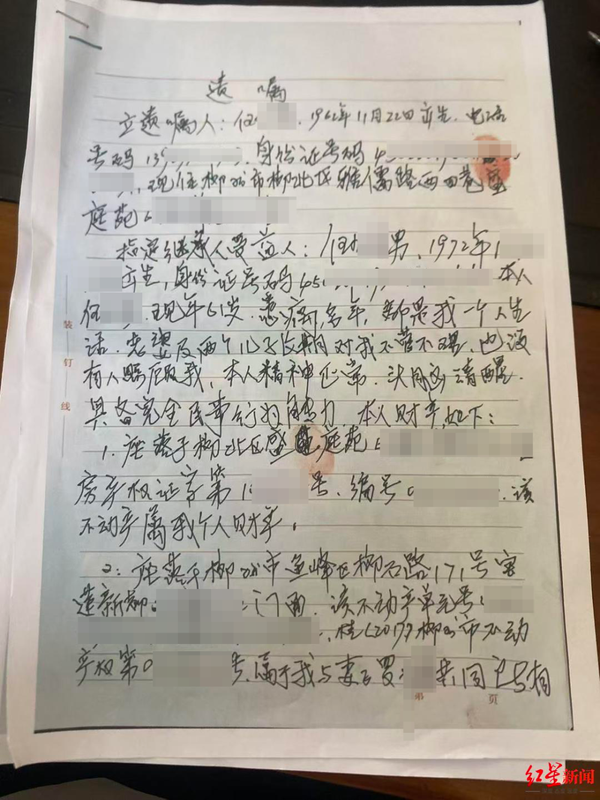 遗嘱
立遗嘱人：任 1962年11月22日出生.电话
号码13 身份证号码4
现住柳州市柳北区雅儒路西四巷盛
庭苑
指定继承人受益人：任 男，1972年1
出生，身份证号码450 本人
任 现年61岁.患病多年，都是我一个人生
活.老婆及两个儿子长期对我不管不理.也没
有人照顾我，本人精神正常.头脑清醒
具备完全民事行为能力 本人财产如下：
1.座落于柳北区盛 庭苑
房产权证字第1 号.编号 该
不动产属我个人财产.
2.座落于柳州市鱼峰区柳石路171号
门面.该不动产单元号
桂(2017)柳州市不动
产权第0 号.属于我与妻子罗 共同
装订线
第 页
红星新闻